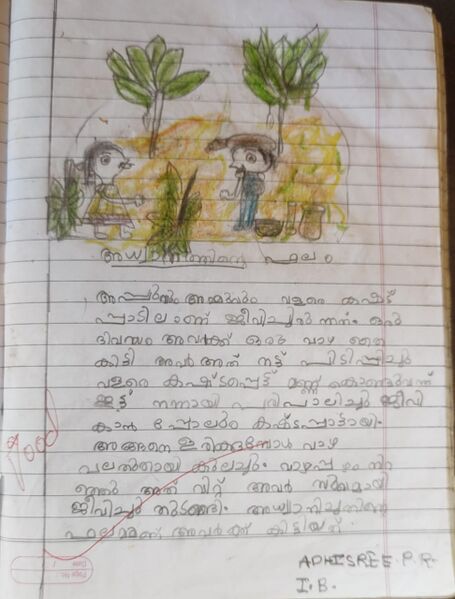 അധ്വാനത്തിന്റെ ഫലം
അപ്പുവും അമ്മുവും വളരെ കഷ്ട
പ്പാടിലാണ് ജീവിച്ചിരുന്നത്. ഒരു
ദിവസം അവർക്ക് ഒരു വാഴ തൈ
കിട്ടി അവർ അത് നട്ട് പിടിപ്പിച്ചു
വളരെ കഷ്ടപ്പെട്ട് മണ്ണ് കൊണ്ടുവന്ന്
ഇട്ട് നന്നായി പരിപാലിച്ചു ജീവി
കാൻ പോലും കഷ്ടപ്പാടായി.
അങ്ങനെ ഇരിക്കുമ്പോൾ വാഴ
വലുതായി കുലച്ചു. വാഴപ്പഴം
അത് വിറ്റ് അവർ സുഖമായി
ജീവിച്ചു തുടങ്ങി. അധ്വാനിച്ചതിന്റെ
ഫലമാണ് അവർക്ക് കിട്ടിയത്.
Good
ADHISREE.P.R.
I.B.
Page No.:
Date: